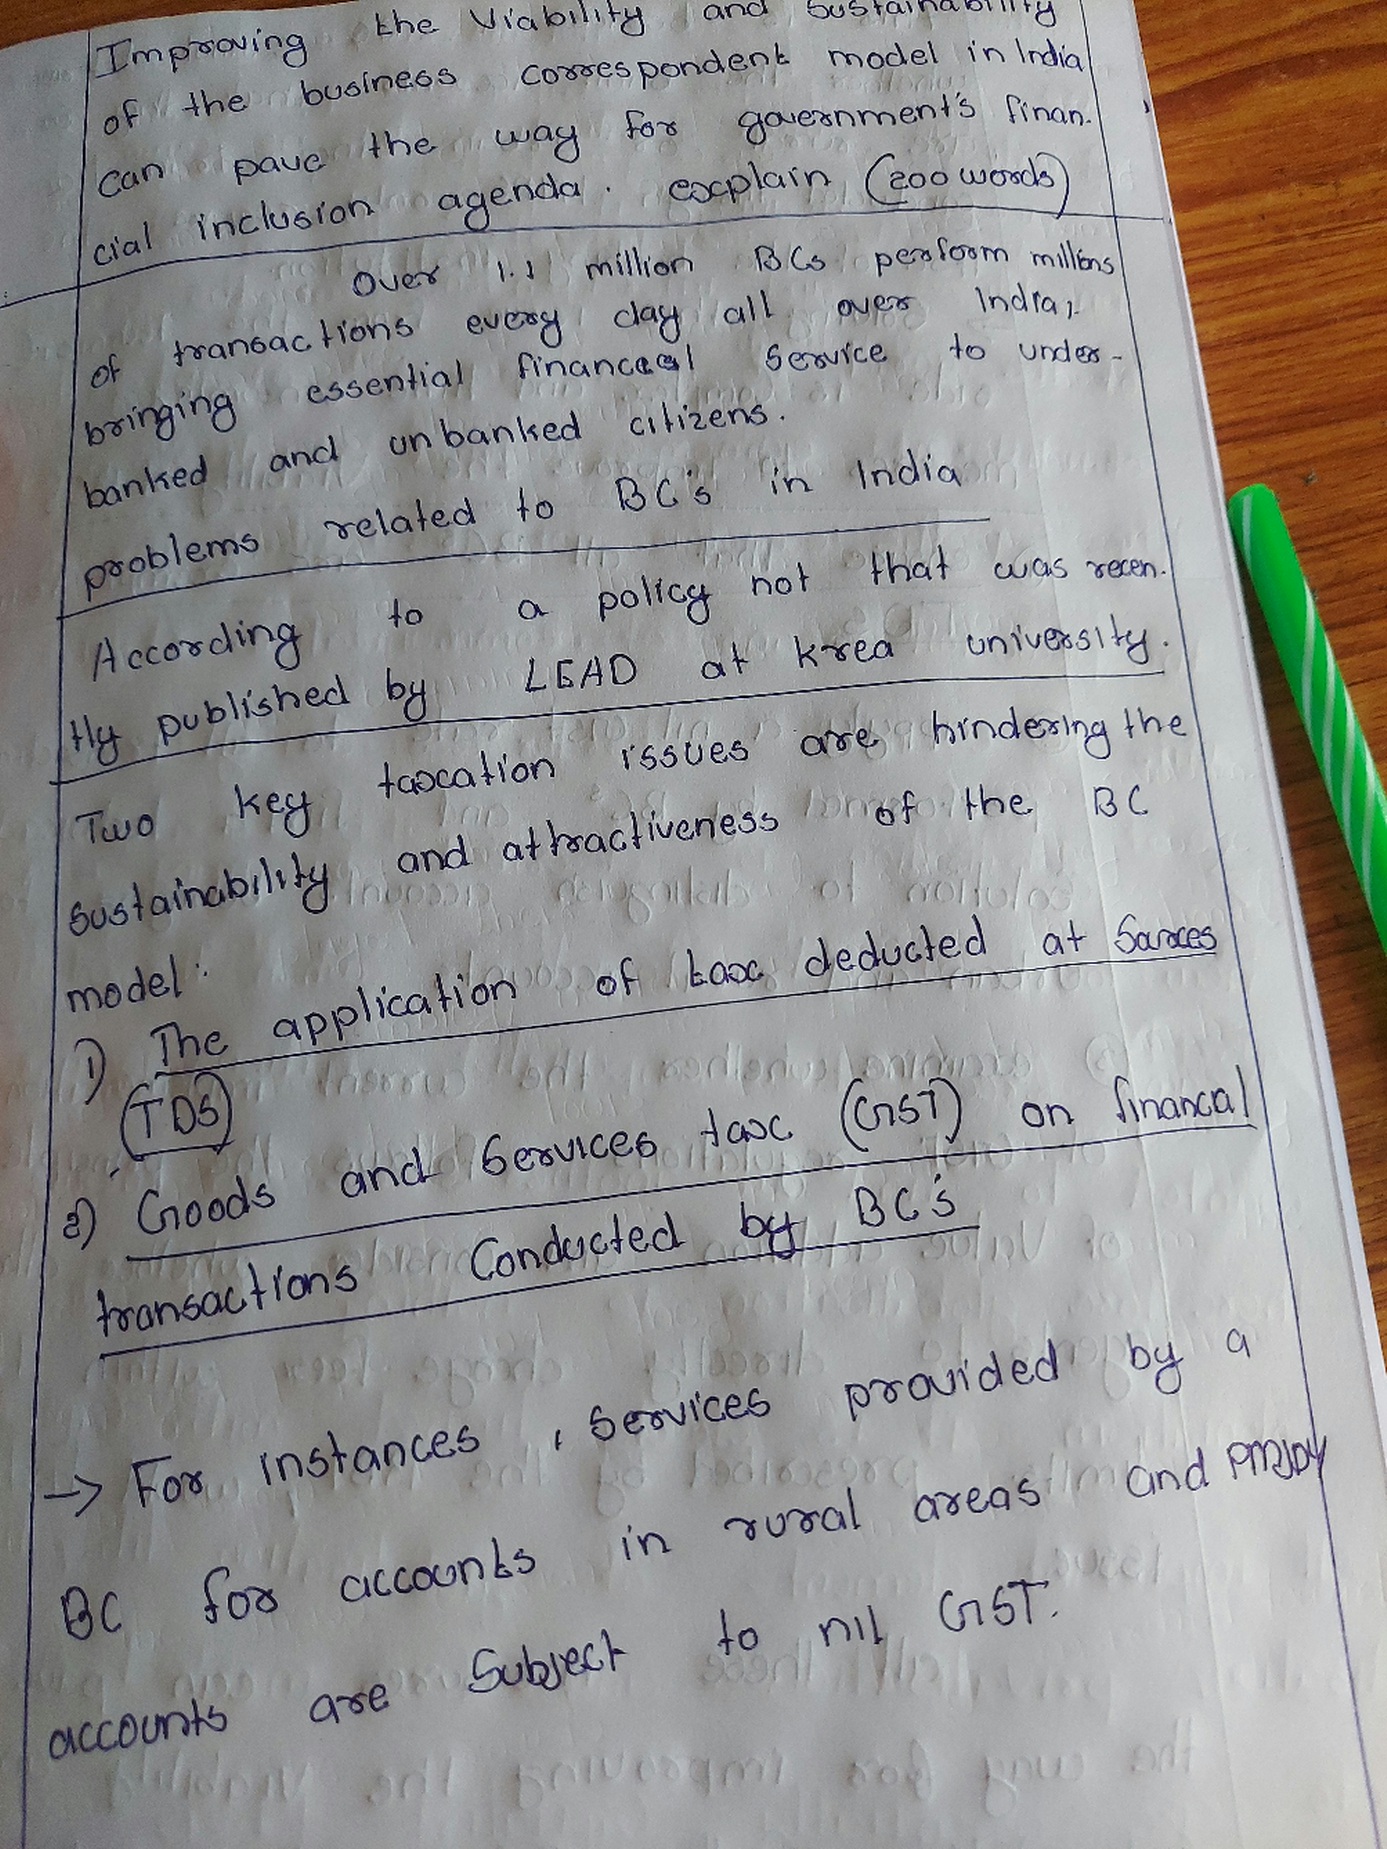 Improving the Viability and Sustainability
of the business correspondent model in India
can pave the way for government's finan-
cial inclusion agenda. explain (200 words)
Over 1.1 million BCs perform millions
of transactions every day all over India,
bringing essential financeal Service to under-
banked and unbanked citizens.
problems related to BC's in India
According to a policy not that was recen-
tly published by LEAD at krea university.
Two key taxation issues are hindering the
sustainability and attractiveness of the BC
model:
1) The application of tax deducted at Sources
(TDS)
2) Goods and Services tax (GST) on financal
transactions Conducted by BC's
→ For instances, Services provided by a
BC for accounts in rural areas and PMJDY
accounts are Subject to nil GST.